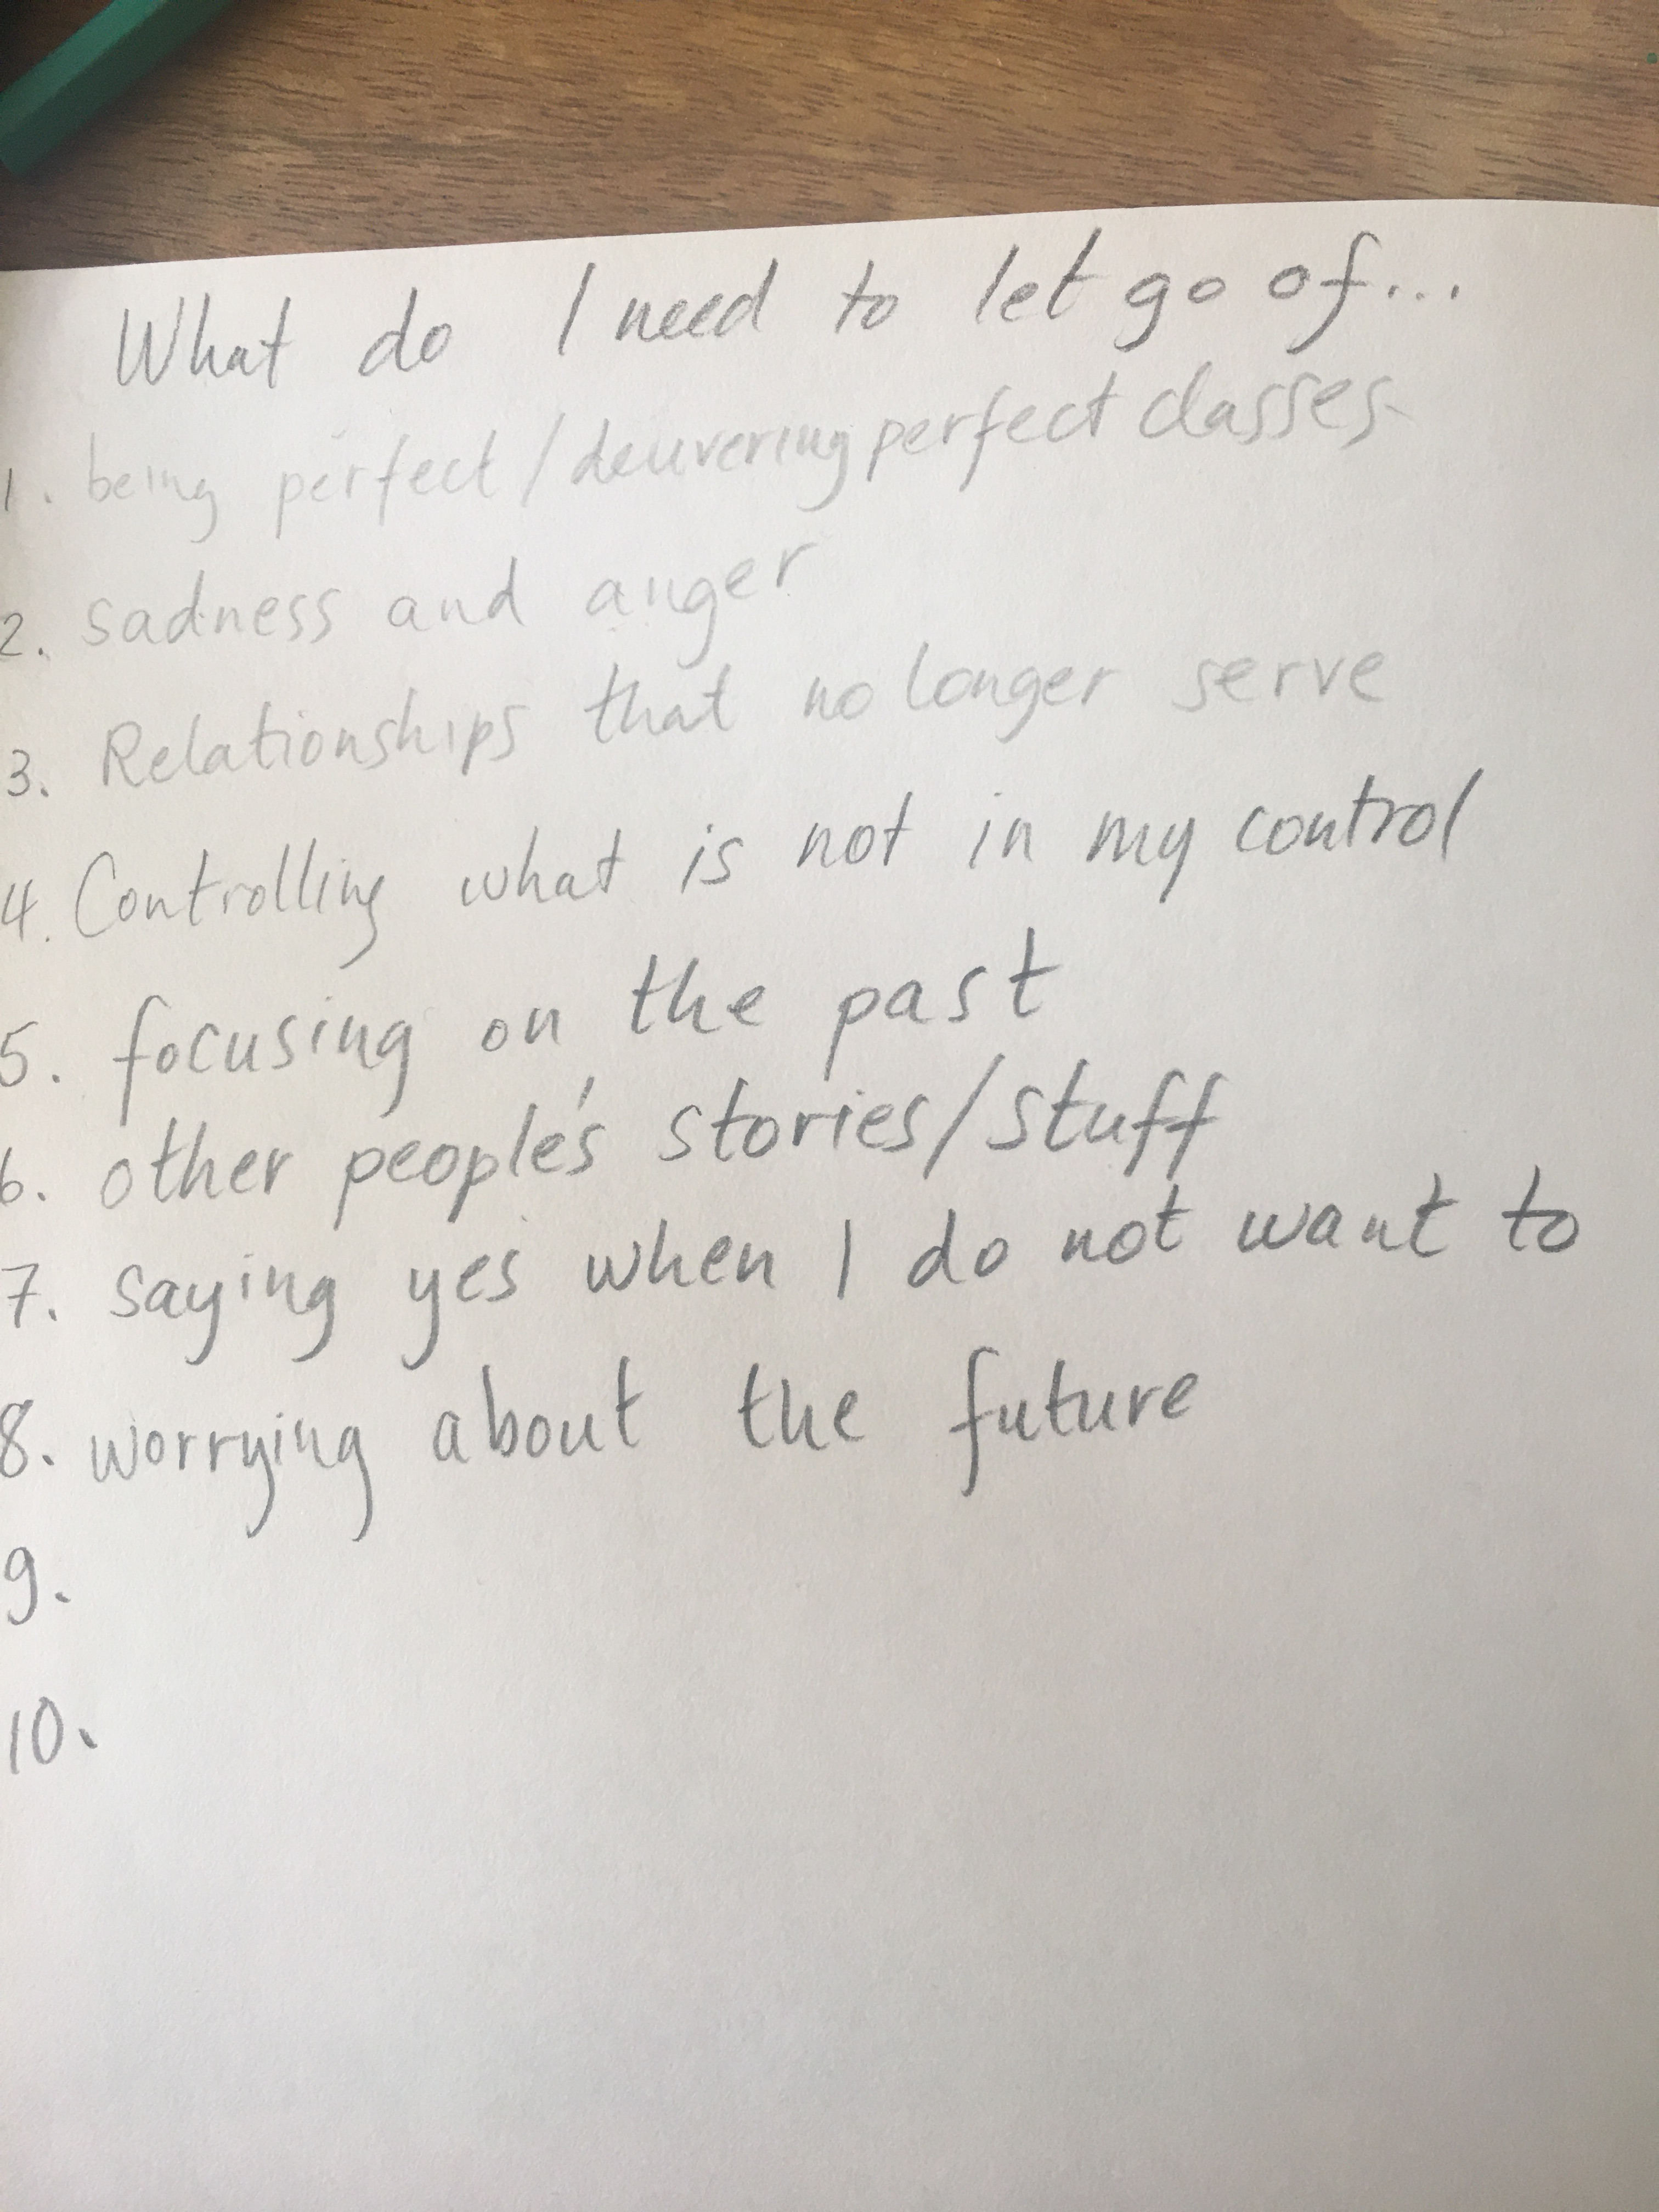 What do I need to let go of...
1. being perfect/delivering perfect classes
2. sadness and anger
3. Relationships that no longer serve
4. Controlling what is not in my control
5. focusing on the past
6. other people's stories/stuff
7. saying yes when I do not want to
8. worrying about the future
9.
10.